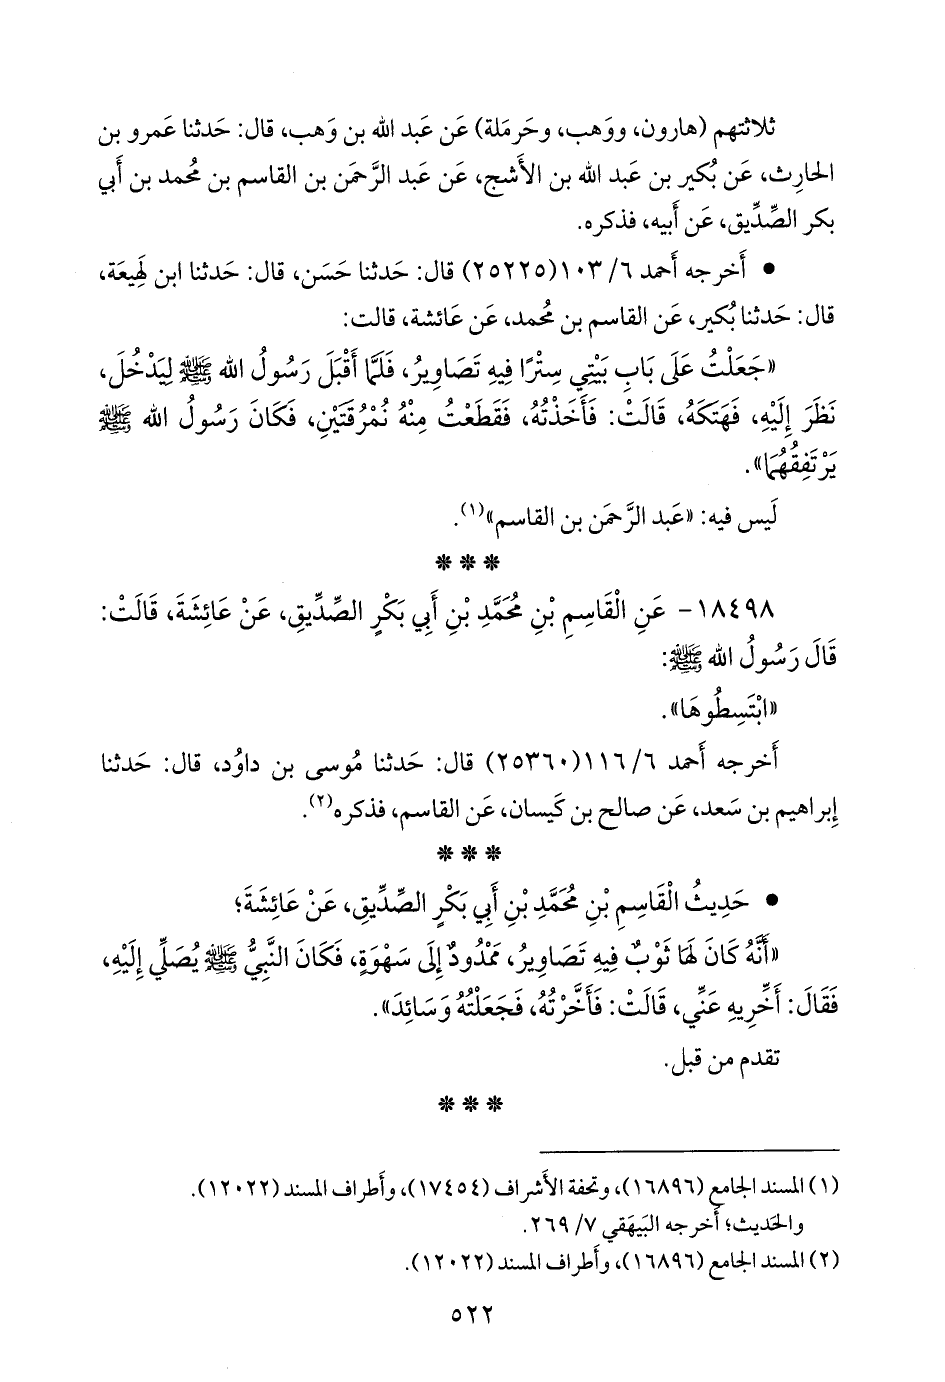 ثلاثتهم (هارون، ووَهب، وحَرمَلة) عَن عَبد الله بن وَهب، قال: حَدثنا عَمرو بن
الحارِث، عَن بُكير بن عَبد الله بن الأَشج، عَن عَبد الرَّحمَن بن القاسم بن مُحمد بن أَبي
بكر الصِّدِّيق، عَن أَبيه، فذكره.
• أَخرجه أَحمد ٦/ ١٠٣(٢٥٢٢٥) قال: حَدثنا حَسَن، قال: حَدثنا ابن لَهِيعَة،
قال: حَدثنا بُكير، عَن القاسم بن مُحمد، عَن عَائشة، قالت:
«جَعَلْتُ عَلَى بَابِ بَيْتِي سِتْرًا فِيهِ تَصَاوِيرُ، فَلَمَّا أَقْبَلَ رَسُولُ الله ﷺ لِيَدْخُلَ،
نَظَرَ إِلَيْهِ، فَهَتَكَهُ، قَالَتْ: فَأَخَذْتُهُ، فَقَطَعْتُ مِنْهُ نُمْرُقَتَيْنِ، فَكَانَ رَسُولُ الله ﷺ
يَرْتَفِقُهُمَا».
لَيس فيه: «عَبد الرَّحمَن بن القاسم»(١).
* * *
١٨٤٩٨- عَنِ الْقَاسِمِ بْنِ مُحَمَّدِ بْنِ أَبِي بَكْرٍ الصِّدِّيقِ، عَنْ عَائِشَةَ، قَالَتْ:
قَالَ رَسُولُ الله ﷺ:
«ابْتَسِطُوهَا».
أَخرجه أَحمد ٦/ ١١٦(٢٥٣٦٠) قال: حَدثنا مُوسى بن داوُد، قال: حَدثنا
إِبراهيم بن سَعد، عَن صالح بن كَيسان، عَن القاسم، فذكره(٢).
* * *
• حَدِيثُ الْقَاسِمِ بْنِ مُحَمَّدِ بْنِ أَبِي بَكْرٍ الصِّدِّيقِ، عَنْ عَائِشَةَ؛
«أَنَّهُ كَانَ لَهَا ثَوْبٌ فِيهِ تَصَاوِيرُ، مَمْدُودٌ إِلَى سَهْوَةٍ، فَكَانَ النَّبِيُّ ﷺ يُصَلِّي إِلَيْهِ،
فَقَالَ: أَخِّرِيهِ عَنِّي، قَالَتْ: فَأَخَّرْتُهُ، فَجَعَلْتُهُ وَسَائِدَ».
تقدم من قبل.
* * *
(١) المسند الجامع (١٦٨٩٦)، وتحفة الأَشراف (١٧٤٥٤)، وأَطراف المسند (١٢٠٢٢).
والحَديث؛ أَخرجه البَيهَقي ٧/ ٢٦٩.
(٢) المسند الجامع (١٦٨٩٦)، وأَطراف المسند (١٢٠٢٢).
٥٢٢